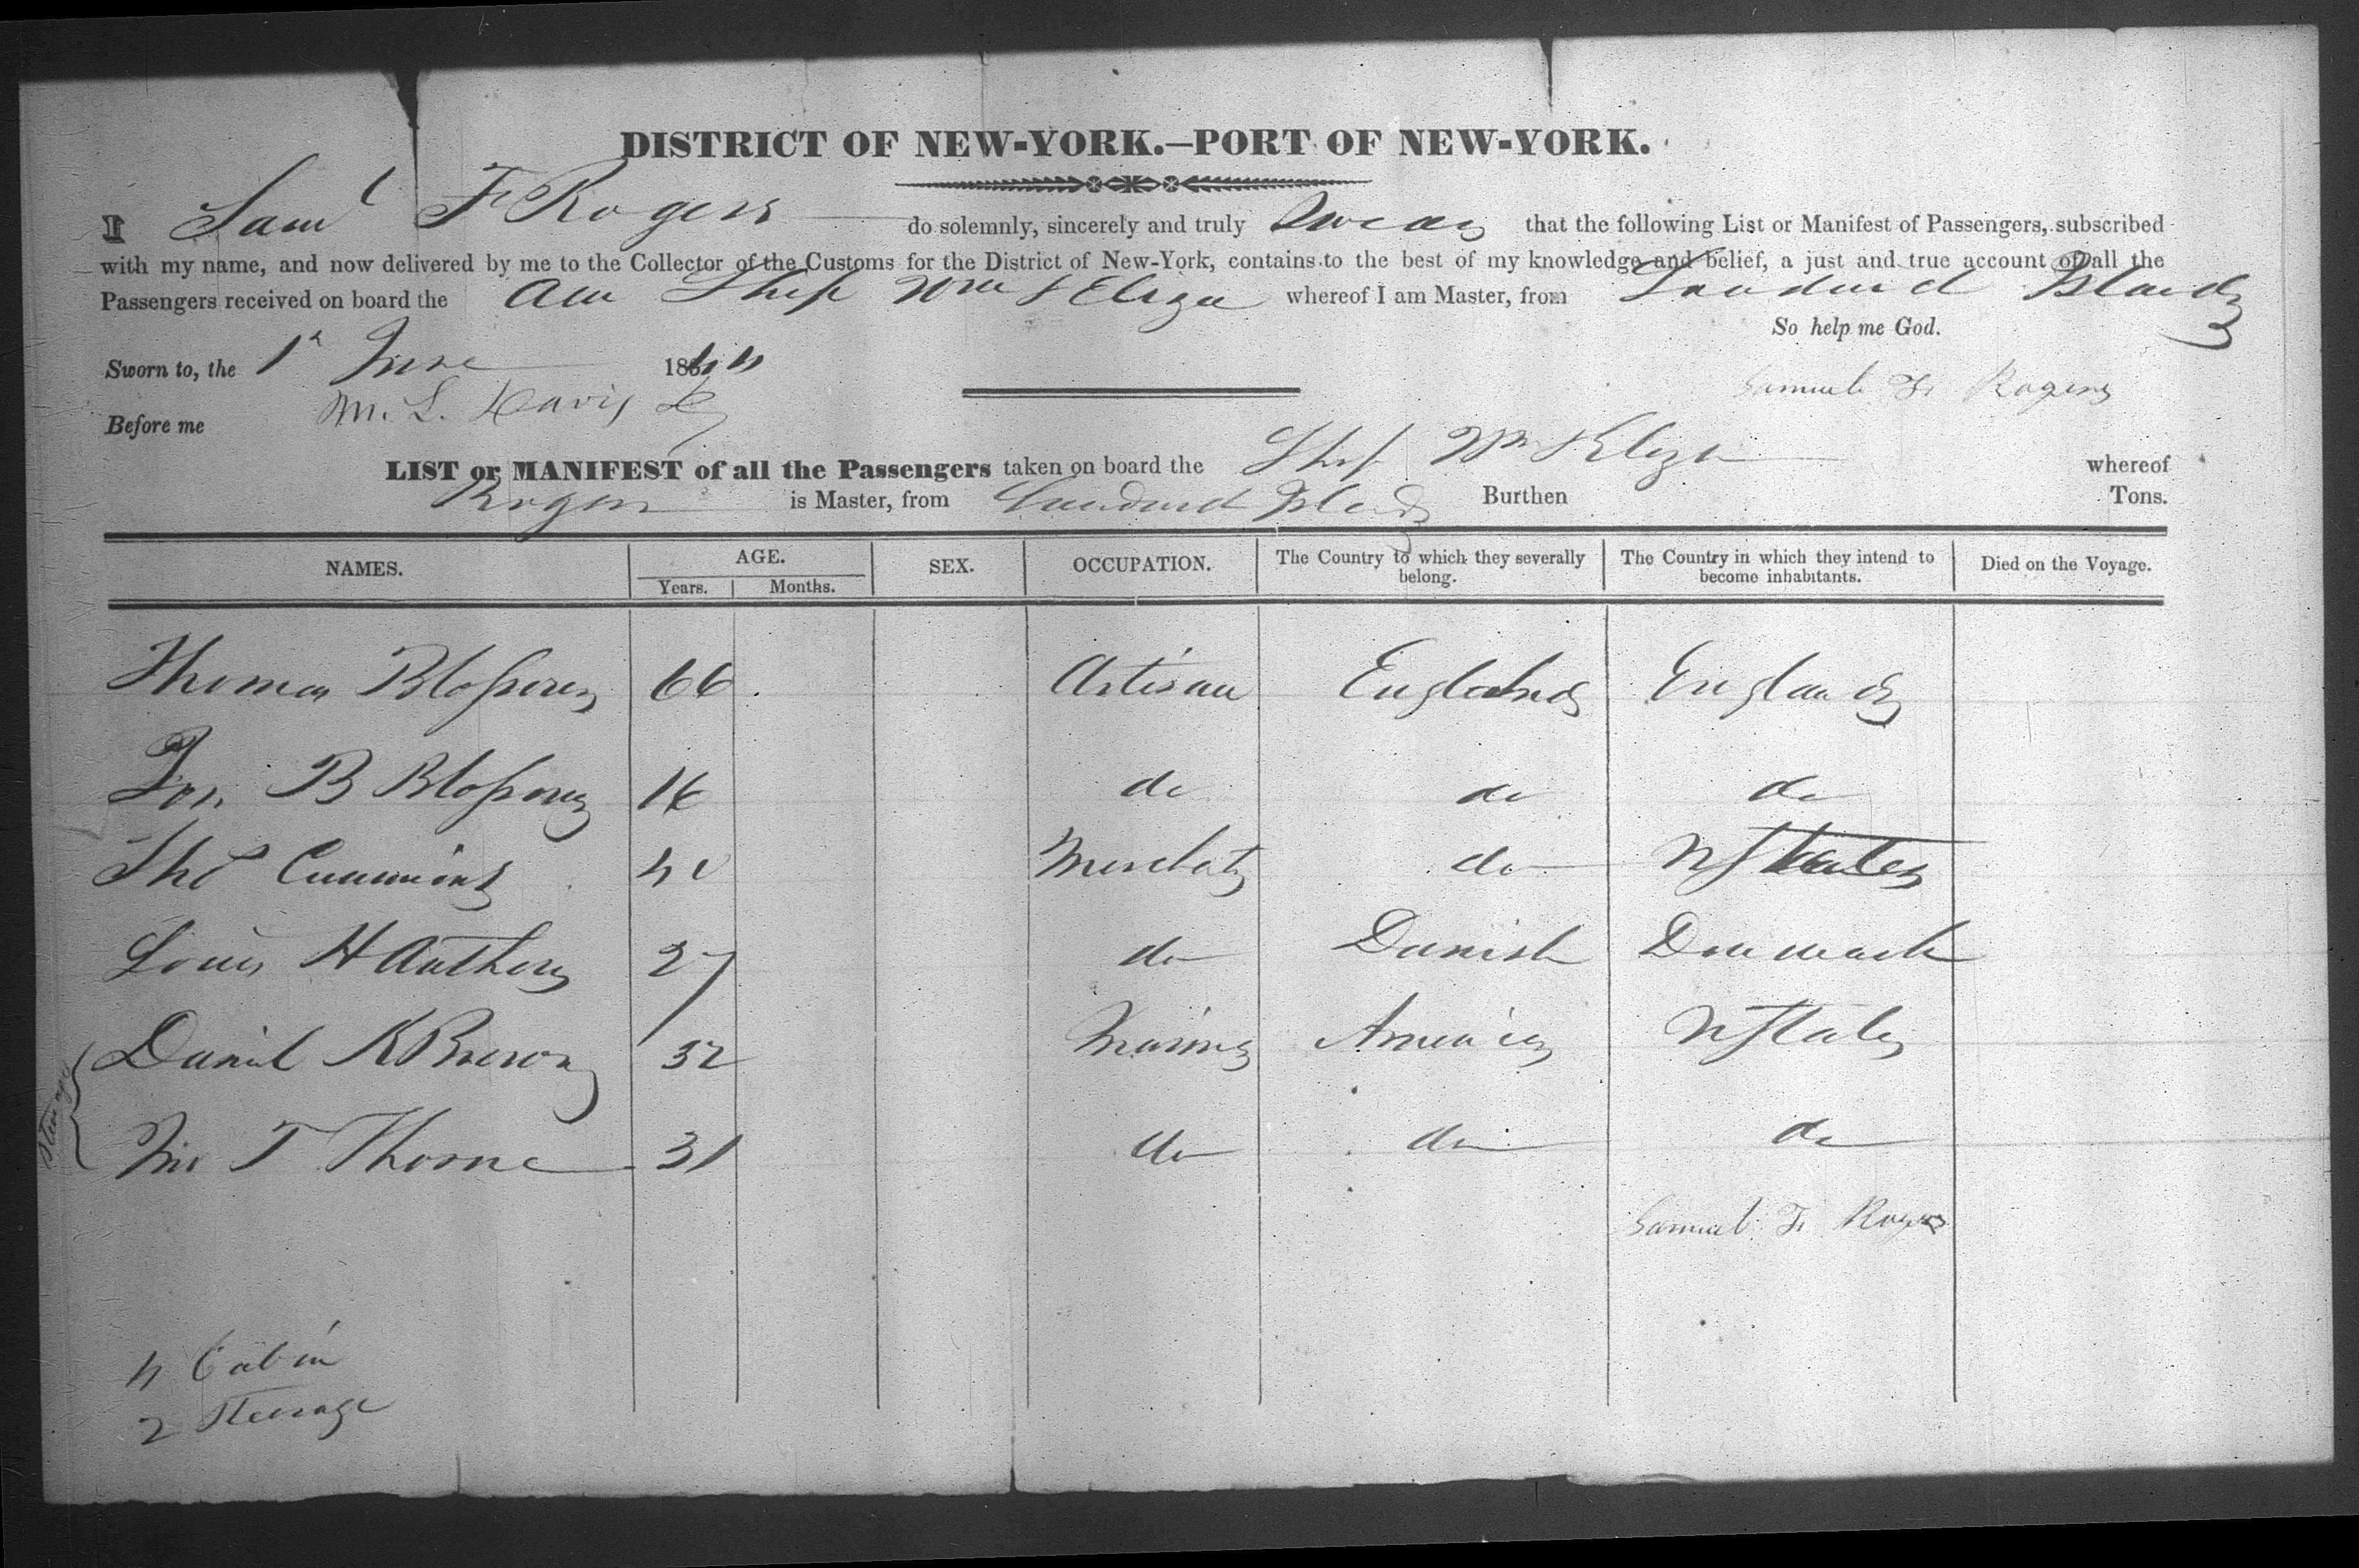 DISTRICT OF NEW-YORK.—PORT OF NEW-YORK.
I Saml F Rogers do solemnly, sincerely and truly Swear that the following List or Manifest of Passengers, subscribed
with my name, and now delivered by me to the Collector of the Customs for the District of New-York, contains to the best of my knowledge and belief, a just and true account of all the
Passengers received on board the Am Ship Wm & Eliza whereof I am Master, from Islands
So help me God.
Sworn to, the 1st June 1844
Samuel F. Rogers
Before me M. L. Davis
LIST or MANIFEST of all the Passengers taken on board the Ship Wm & Eliza whereof
Rogers is Master, from Islands Burthen Tons.
NAMES. AGE. SEX. OCCUPATION. The Country to which they severally belong. The Country in which they intend to become inhabitants. Died on the Voyage.
Years. Months.
Thomas 66 Artisan England England
B do do do
Thos Cummins Merchant do U States
Louis H Anthony 27 do Danish Denmark
Daniel K Brown 32 Mariner America U States
Jno T Thorne 31 do do do
Steerage
Samuel F. Rogers
4 Cabin
2 Steerage